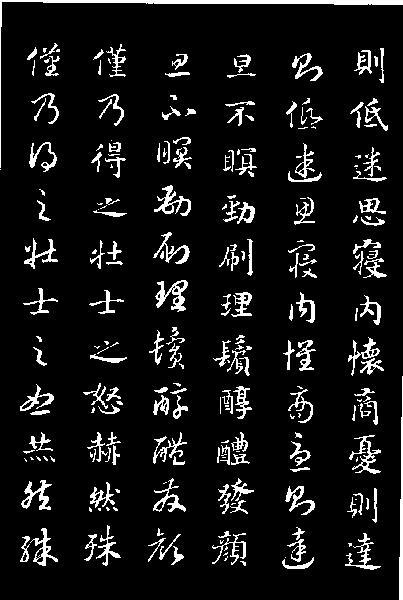 則低迷思寢內懷商憂則達
則低迷思寢內懷商憂則達
旦不瞑勁刷理鬢醇醴發顏
旦不瞑勁刷理鬢醇醴發顏
僅乃得之壯士之怒赫然殊
僅乃得之壯士之怒赫然殊